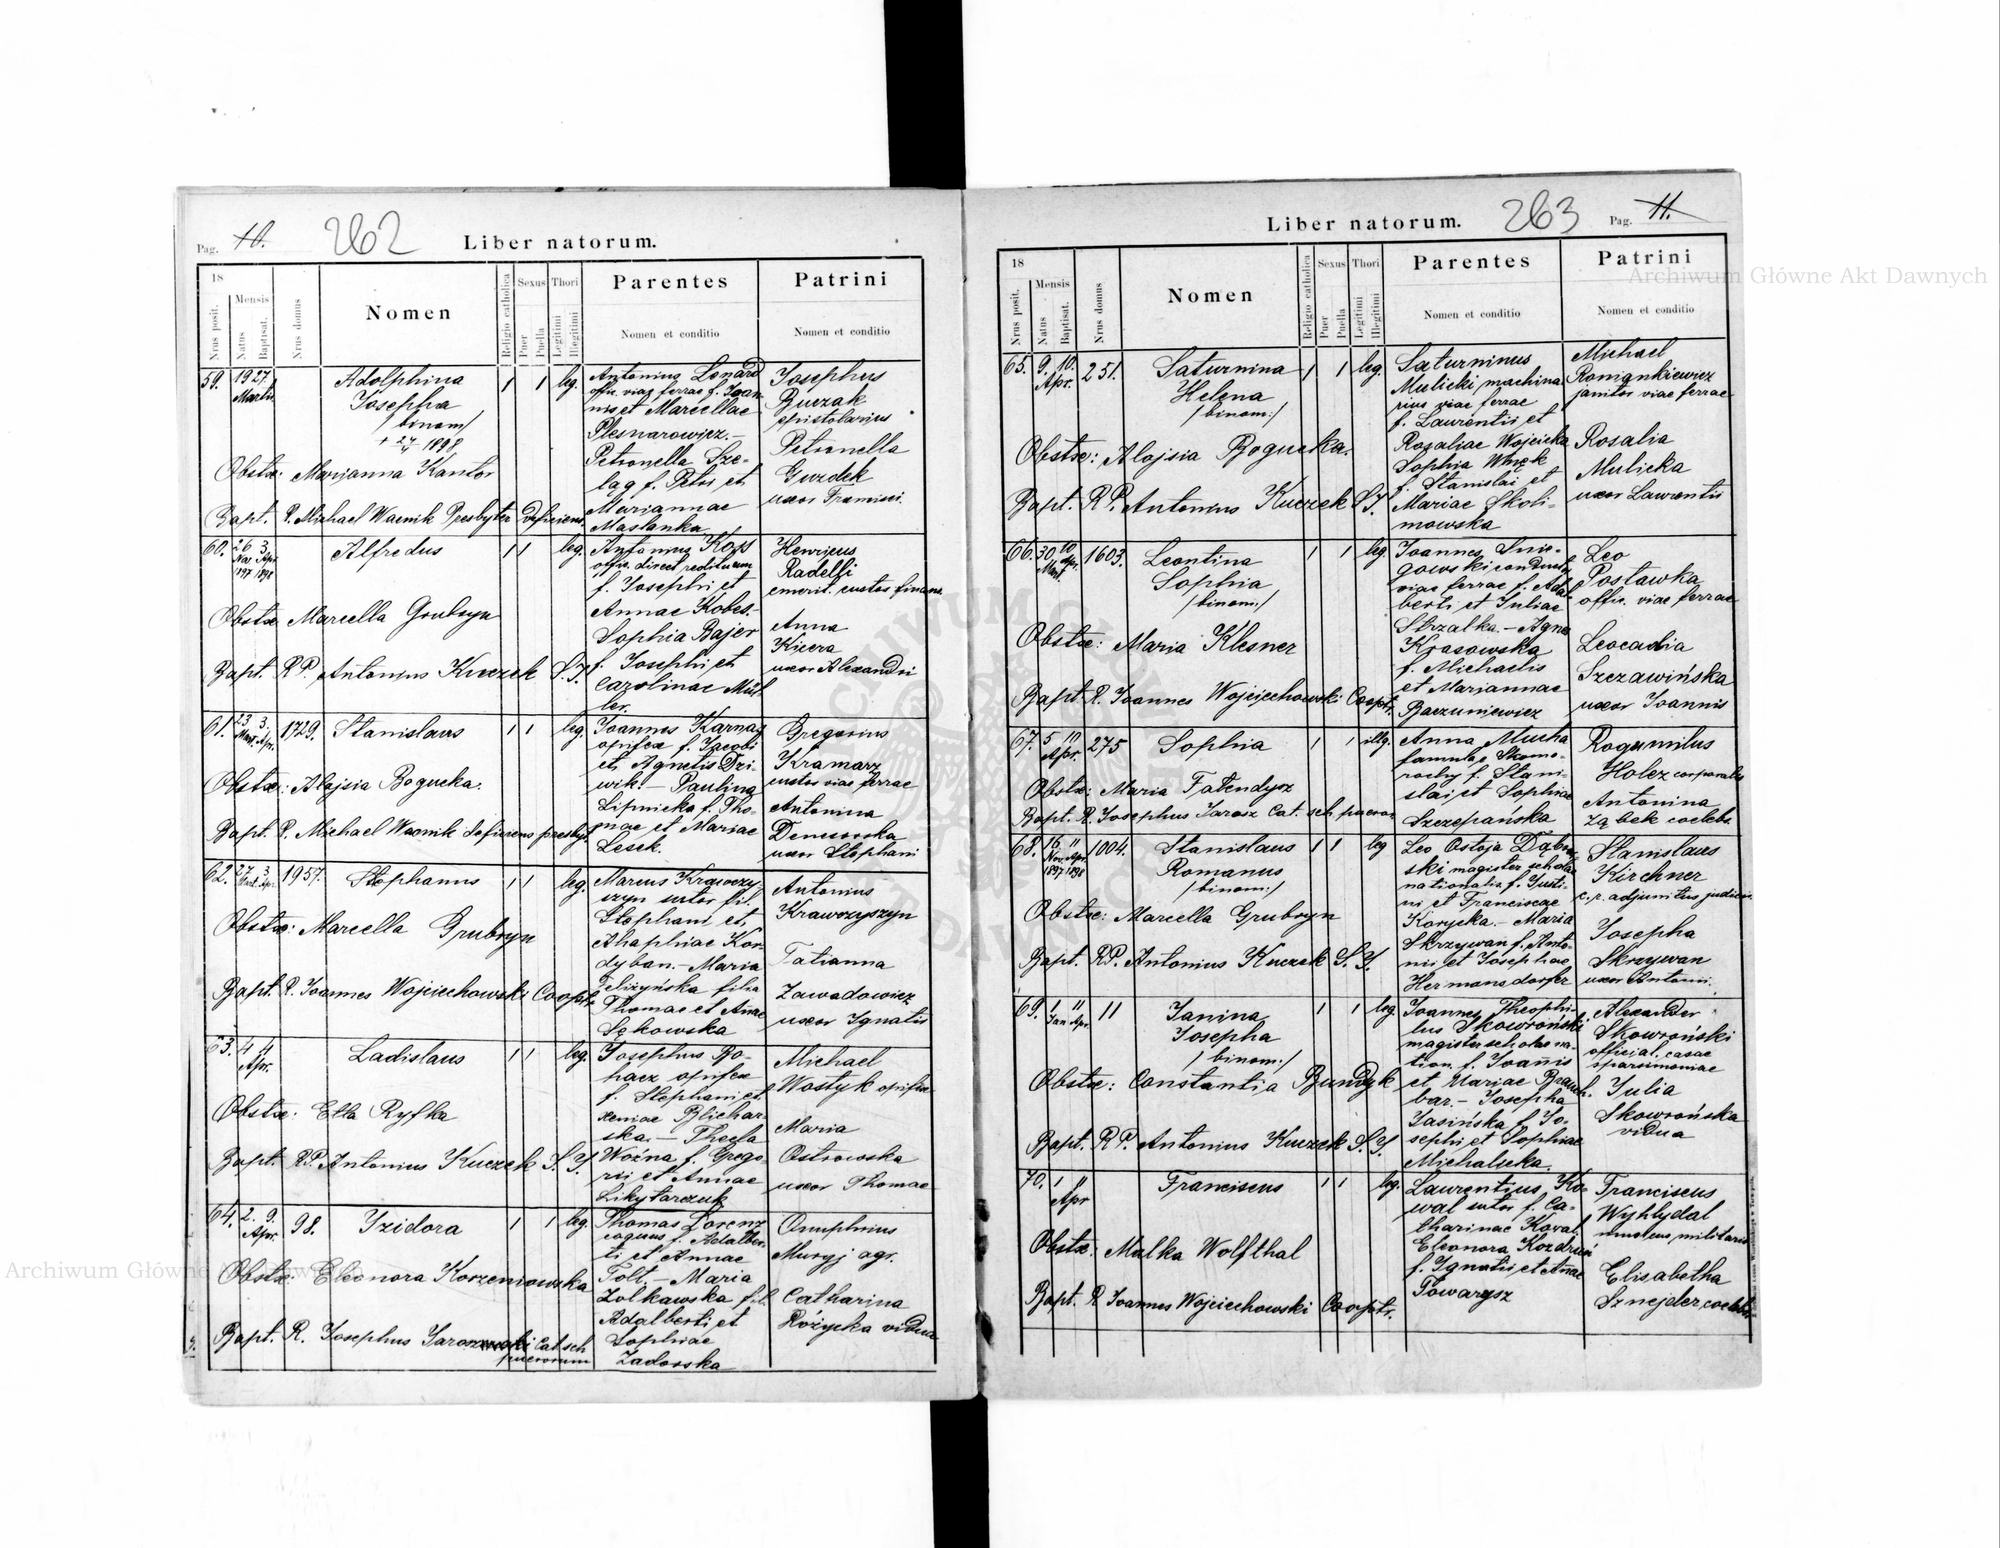 Pag. 10. 262 Liber natorum.
18
Nrus posit.
Mensis
Natus
Baptisat.
Nrus domus
Nomen
Religio catholica
Sexus
Puer
Puella
Thori
Legitimi
Illegitimi
Parentes
Nomen et conditio
Patrini
Nomen et conditio
59. 19 27. Adolphina 1 1 leg.
Martii Josepha
/binom/
+ 1898
Obstx: Marjanna Kantor
Bapt. P. Michael Wacnik Presbyter deficiens.
Antonius Lonard
offic. viae ferrae f. Joan-
nis et Marcellae
Plesnarowicz.-
Petronella Sze-
lag f. Petri et
Mariannae
Maslanka
Josephus
Buczak
epistolarius
Petronella
Guzdek
uxor Francisci
60. 26 3. Alfredus 1 1 leg.
Nov. Apr.
1897 1898
Obstx Marcella Grubryn
Bapt. RP. Antonius Kuczek S.J.
Antonius Koss
offic. direct. redituum
f. Josephi et
Annae Kobes.-
Sophia Bajer
f. Josephi et
Carolinae Mül-
ler.
Henricus
Radelli
emerit. custos finans.
Anna
Kicera
uxor Alexandri
61. 23 3. 1729. Stanislaus 1 1 leg.
Mart. Apr.
Obstx: Alojsia Bogucka.
Bapt. P. Michael Wacnik deficiens presbyt.
Joannes Karnag
opifex f. Jacobi
et Agnetis Dzi-
wik.- Paulina
Lipnicka f. Tho-
mae et Mariae
Lesek.
Gregorius
Kramarz
custos viae ferrae
Antonina
Denesovska
uxor Stephani
62. 27 3. 1957. Stephanus 1 1 leg.
Mart. Apr.
Obstx: Marcella Grubryn
Bapt. P. Joannes Wojciechowski Cooptr.
Marcus Krawczy-
szyn sutor fil.
Stephani et
Ahaphiae Kor-
dyban.- Maria
Jeliżyńska filia
Thomae et Annae
Sękowska
Antonius
Krawczyszyn
Tatianna
Zawadowicz
uxor Ignatii
63. 4 4 Ladislaus 1 1 leg.
Apr.
Obstx: Etla Ryfka
Bapt. RP. Antonius Kuczek S.J.
Josephus Bo-
hacz opifex
f. Stephani et
Xeniae Blichar-
ska.- Thecla
Woźna f. Grego-
rii et Annae
Likytarczuk
Michael
Wostyk opifex
Maria
Ostrowska
uxor Thomae
64. 2. 9. 98. Izidora 1 1 leg.
Apr.
Obstx: Eleonora Korzeniowska
Bapt. R. Josephus Jarosz Cat. sch
puerorum
Thomas Lorenz
coquus f. Adalber-
ti et Annae
Tolt.- Maria
Zolkawska fil.
Adalberti et
Sophiae
Zadorska
Onuphrius
Muryj agr.
Catharina
Różycka vidua
Liber natorum. 263 Pag. 11.
18
Nrus posit.
Mensis
Natus
Baptisat.
Nrus domus
Nomen
Religio catholica
Sexus
Puer
Puella
Thori
Legitimi
Illegitimi
Parentes
Nomen et conditio
Patrini
Nomen et conditio
65. 9. 10. 251. Saturnina 1 1 leg.
Apr. Helena
/binom:/
Obstx: Alojsia Bogucka.
Bapt. RP. Antonius Kuczek S.J.
Saturninus
Mulicki machina-
rius viae ferrae
f. Laurentii et
Rozaliae Wojcicka
Sophia Wnęk
f. Stanislai et
Mariae Skoli-
mowska
Michael
Romankiewicz
janitor viae ferrae
Rosalia
Mulicka
uxor Laurentii
66. 30. 10 1603. Leontina 1 1 leg.
Mart. Apr. Sophia
/binom:/
Obstx: Maria Klesner
Bapt. R. Joannes Wojciechowski Cooptr.
Joannes Śnie-
gowski conduct.
viae ferrae f. Adal-
berti et Juliae
Strzalka.- Agne
Krasowska
f. Michaelis
et Mariannae
Baczuniewicz
Leo
Postawka
offic. viae ferrae
Leocadia
Szczawińska
uxor Joannis
67. 5 10 275 Sophia 1 1 illg.
Apr.
Obstx: Maria Falendysz
Bapt. R. Josephus Jarosz Cat. sch. pueror.
Anna Mucha
famula Skomo-
rochy f. Stani-
slai et Sophiae
Szczepańska
Bogumilus
Holez corporalis
Antonina
Ząbek coelebs.
68. 16 11 1004. Stanislaus 1 1 leg
Nov. Apr. Romanus
1897 1898 /binom:/
Obstx: Marcella Grubryn
Bapt. RP. Antonius Kuczek S.J.
Leo Ostoja Dąbrow-
ski magister scholae
nationalis f. Justi-
ni et Franciscae
Korycka.- Maria
Skrzywan f. Anto-
nii et Josephae
Hermansdorfer
Stanislaus
Kirchner
c.r. adjunctus judicii
Josepha
Skrzywan
uxor Antonii.
69. 1 11 11 Janina 1 1 leg.
Jan Apr. Josepha
/binom:/
Obstx: Constantia Bundyk
Bapt. RP. Antonius Kuczek S.J.
Joannes Theophi-
lus Skowroński
magister scholae na-
tion. f. Joannis
et Mariae Branch-
bar.- Josepha
Jasińska f. Jo-
sephi et Sophiae
Michalicka.
Alexander
Skowroński
official. casae
parsimoniae
Julia
Skowrońska
vidua
70. 1 11 Franciscus 1 1 leg.
Apr
Obstx: Malka Wolfthal
Bapt. R. Joannes Wojciechowski Cooptr.
Laurentius Ko-
wal sutor f. Ca-
tharinae Koval
Eleonora Kozdruń
f. Ignatii et Annae
Towarysz
Franciscus
Wyhlydal
emeritus militaris
Elisabetha
Sznejder coelebs
Archiwum Główne Akt Dawnych
Archiwum Główne Akt Dawnych